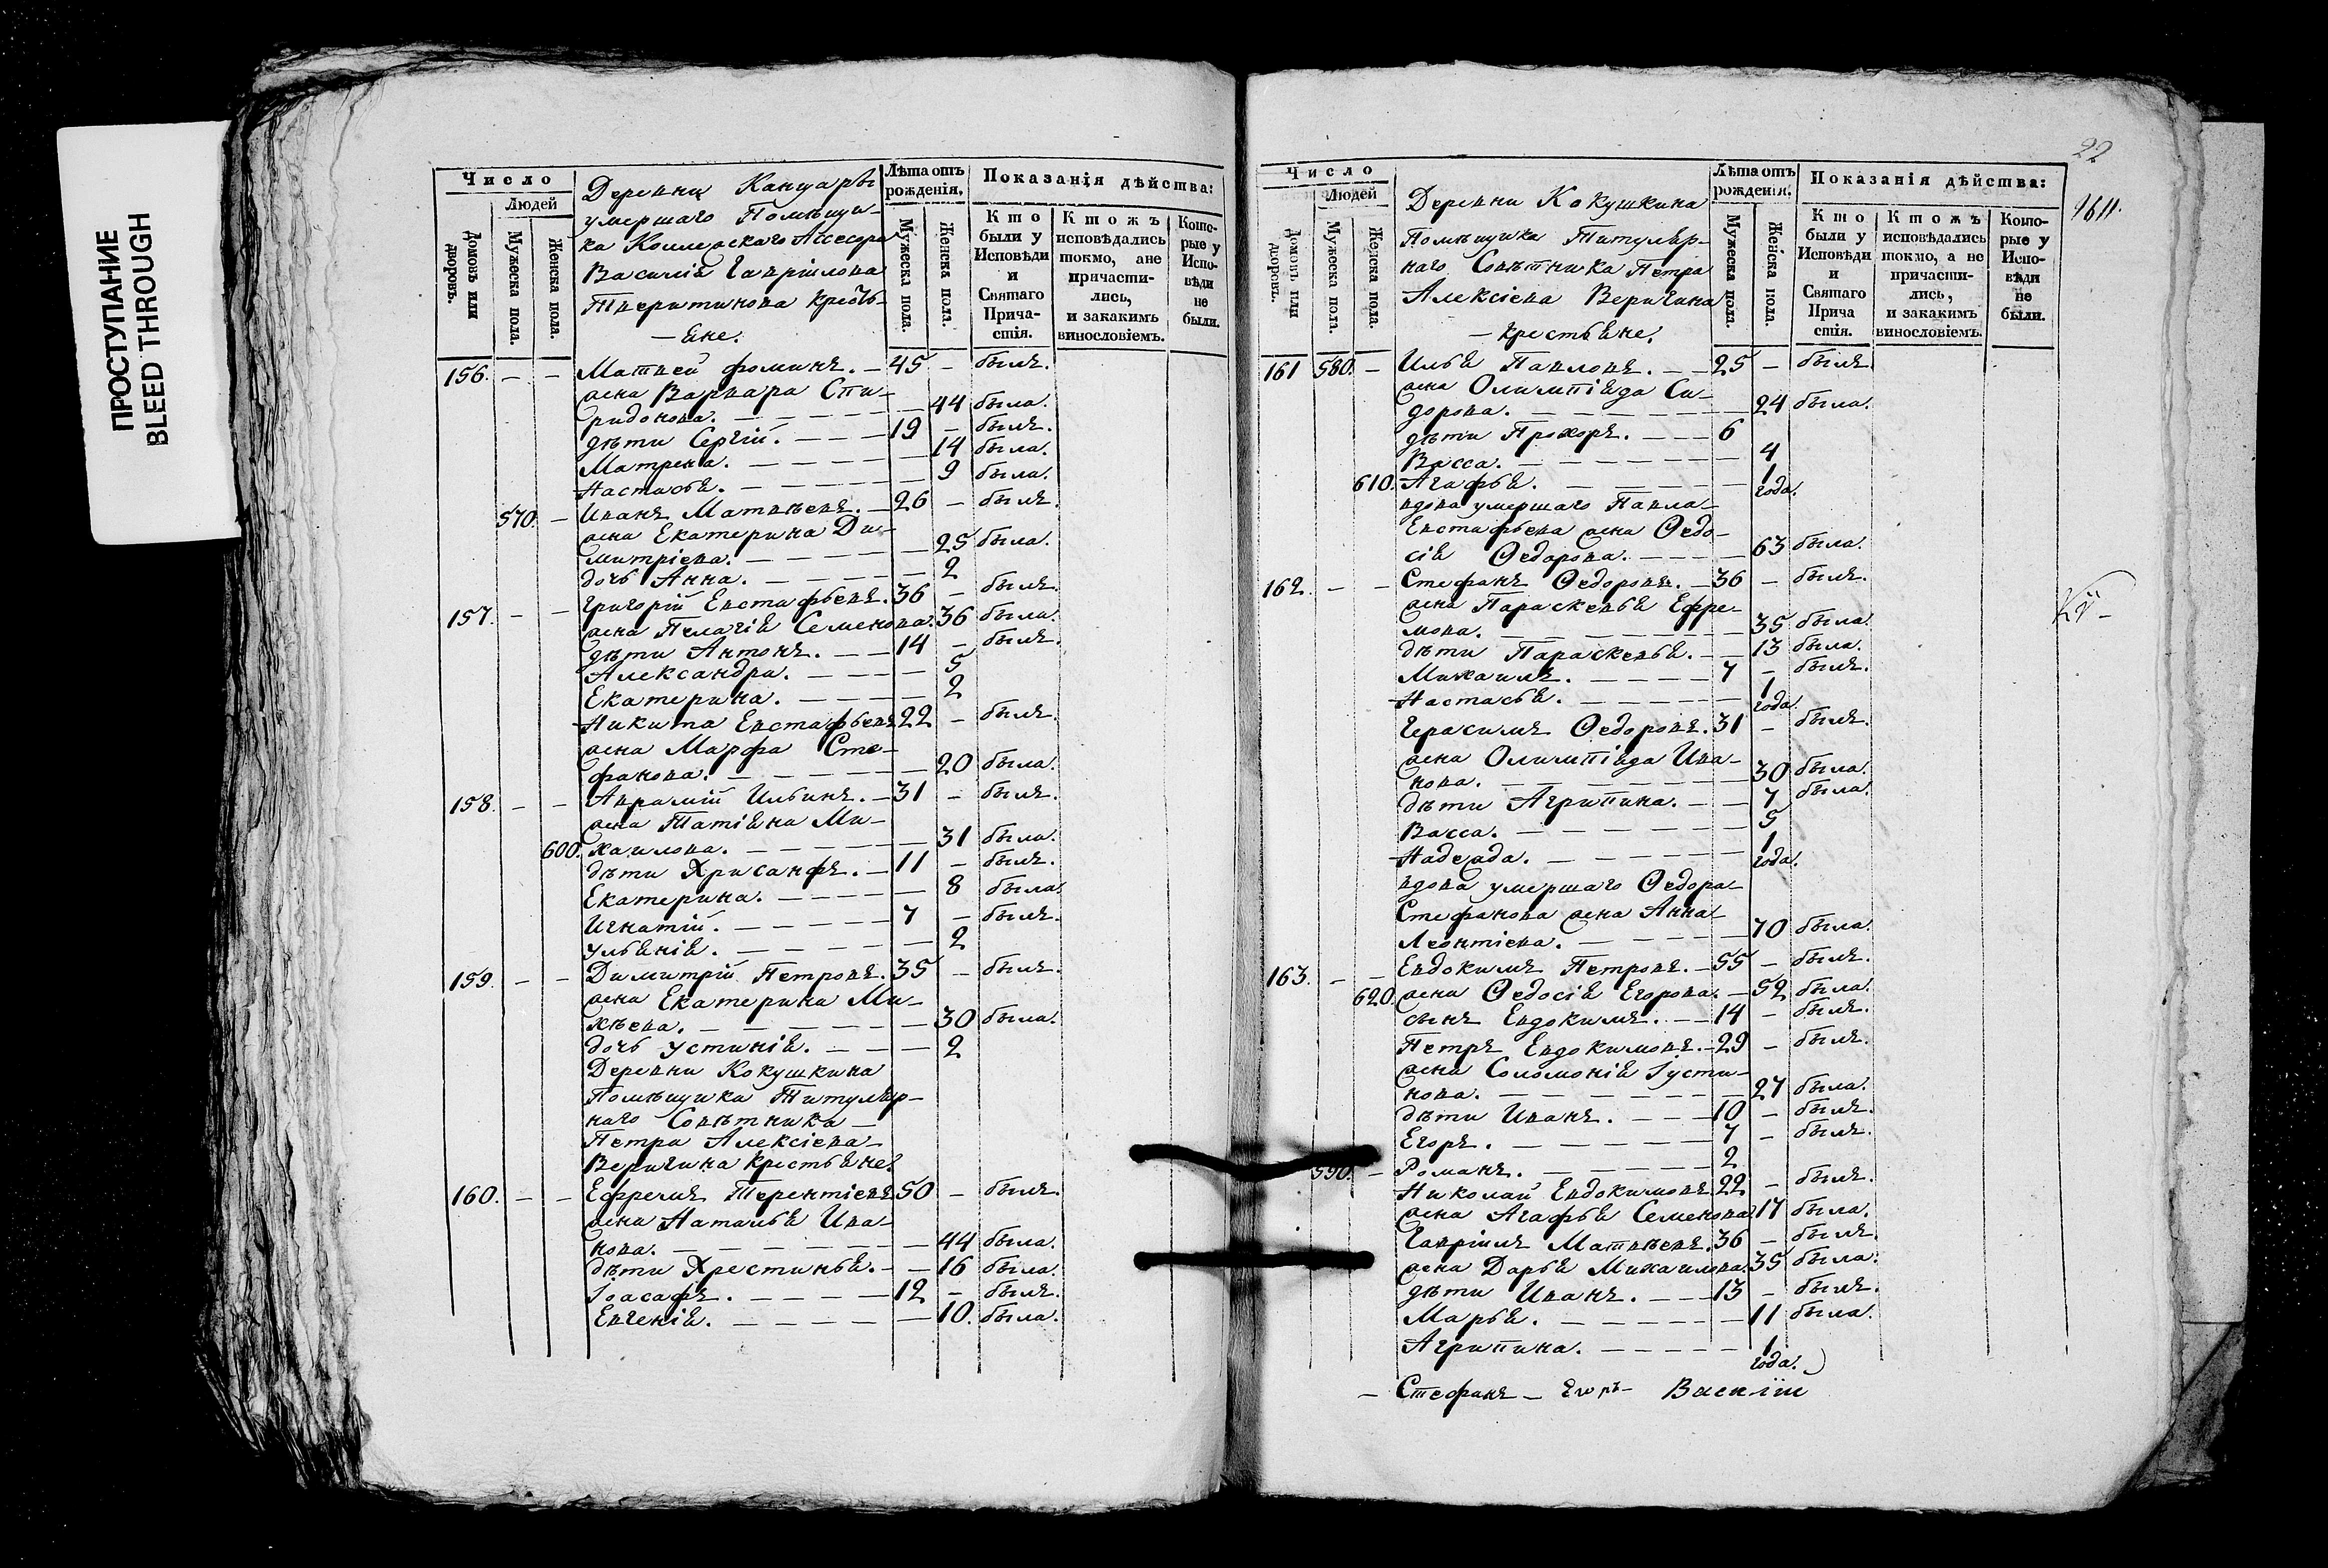 ПРОСТУПАНИЕ
BLEED THROUGH
Число
Людей
Домовъ или дворовъ.
Мужеска пола.
Женска пола.
Деревни Канцары
умершаго Помѣщи-
ка Коллежскаго Ассесора
Василія Гавріилова
Тверитинова кресть-
-яне.
Лѣта отъ рожденія.
Мужеска пола.
Женска пола.
Показанія дѣйства:
Кто были у Исповѣди и Святаго Прича-стія.
Ктожъ исповѣдались токмо, а не причасти-лись, и за какимъ винословіемъ.
Кото-рые у Испо-вѣди не были.
156. – – Матвей Фоминъ. – 45 – былъ.
жена Варвара Спи-
ридонова. – 44 была.
дѣти Сергій. – 19 – былъ.
Матрена. – 14 была.
Настасья. – 9 была.
570. – Иванъ Матвѣевъ. – 26 – былъ.
жена Екатерина Ди-
митріева. – 25 была.
дочь Анна. – 2
157. – – Григорій Евстафьевъ. 36 – былъ.
жена Пелагія Семенова. 36 была.
дѣти Антонъ. – 14 – былъ.
Александра. – 5
Екатерина. – 2
Никита Евстафьевъ 22 – былъ.
жена Марфа Сте-
фанова. – 20 была.
158. – – Аврамій Ильинъ. – 31 – былъ.
жена Татіяна Ми-
600. хаилова. – 31 была.
дѣти Хрисанфъ. – 11 – былъ.
Екатерина. – 8 была.
Игнатій. – 7 – былъ.
Ульянія. – 2
159. – – Димитрій Петровъ. 35 – былъ.
жена Екатерина Ми-
хѣева. – 30 была.
дочь Устинія. – 2
Деревни Кокушкина
Помѣщика Титуляр-
наго Совѣтника
Петра Алексіева
Веригина крестьяне.
160. – – Ефремъ Терентіевъ 50 – былъ.
жена Наталья Ива-
нова. – 44 была.
дѣти Хрестинья. – 16 была.
Іоасафъ. – 12 – былъ.
Евгенія. – 10. была.
22
1611.
Число
Людей
Домовъ или дворовъ.
Мужеска пола.
Женска пола.
Деревни Кокушкина
Помѣщика Титуляр-
наго Совѣтника Петра
Алексіева Веригина
– крестьяне.
Лѣта отъ рожденія.
Мужеска пола.
Женска пола.
Показанія дѣйства:
Кто были у Исповѣди и Святаго Прича стія.
Ктожъ исповѣдались токмо, а не причасти-лись, и за какимъ винословіемъ.
Кото-рые у Испо-вѣди не были.
161 580. – Илья Павловъ. – 25 – былъ.
жена Олимпіяда Си-
дорова. – 24 была.
дѣти Прохоръ. – 6
Васса. – 4
610. Агафья. – 1 года.
вдова умершаго Павла
Евстафьева жена Ѳедо-
сія Ѳедорова. – 63 была.
162. – – Стефанъ Ѳедоровъ. – 36 – былъ.
жена Параскевья Ефре-
мова. – 35 была.
дѣти Параскевья. – 13 была.
Михаилъ. – 7 – былъ.
Настасья. – 1 года.
Герасимъ Ѳедоровъ. 31 – былъ.
жена Олимпіяда Ива-
нова. – 30 была.
дѣти Агрипина. – 7 была.
Васса. – 5
Надежда. – 1 года.
вдова умершаго Ѳедора
Стефанова жена Анна
Леонтіева. – 70 была.
163. – – Евдокимъ Петровъ. – 55 – былъ.
620. жена Ѳедосія Егорова. – 52 была.
сынъ Евдокимъ. – 14 – былъ.
Петръ Евдокимовъ. – 29 – былъ.
жена Соломонія Густи-
нова. – 27 была.
дѣти Иванъ. – 10 – былъ.
Егоръ. – 7 – былъ.
590. – Романъ. – 2
Николай Евдокимовъ. 22 – былъ.
жена Агафья Семенова. 17 была.
Гавріилъ Матвѣевъ. 36 – былъ.
жена Дарья Михаилова. 35 была.
дѣти Иванъ. – 13 – былъ.
Марья. – 11 была.
Агрипина. – 1 года.
– Стефанъ – Егоръ –